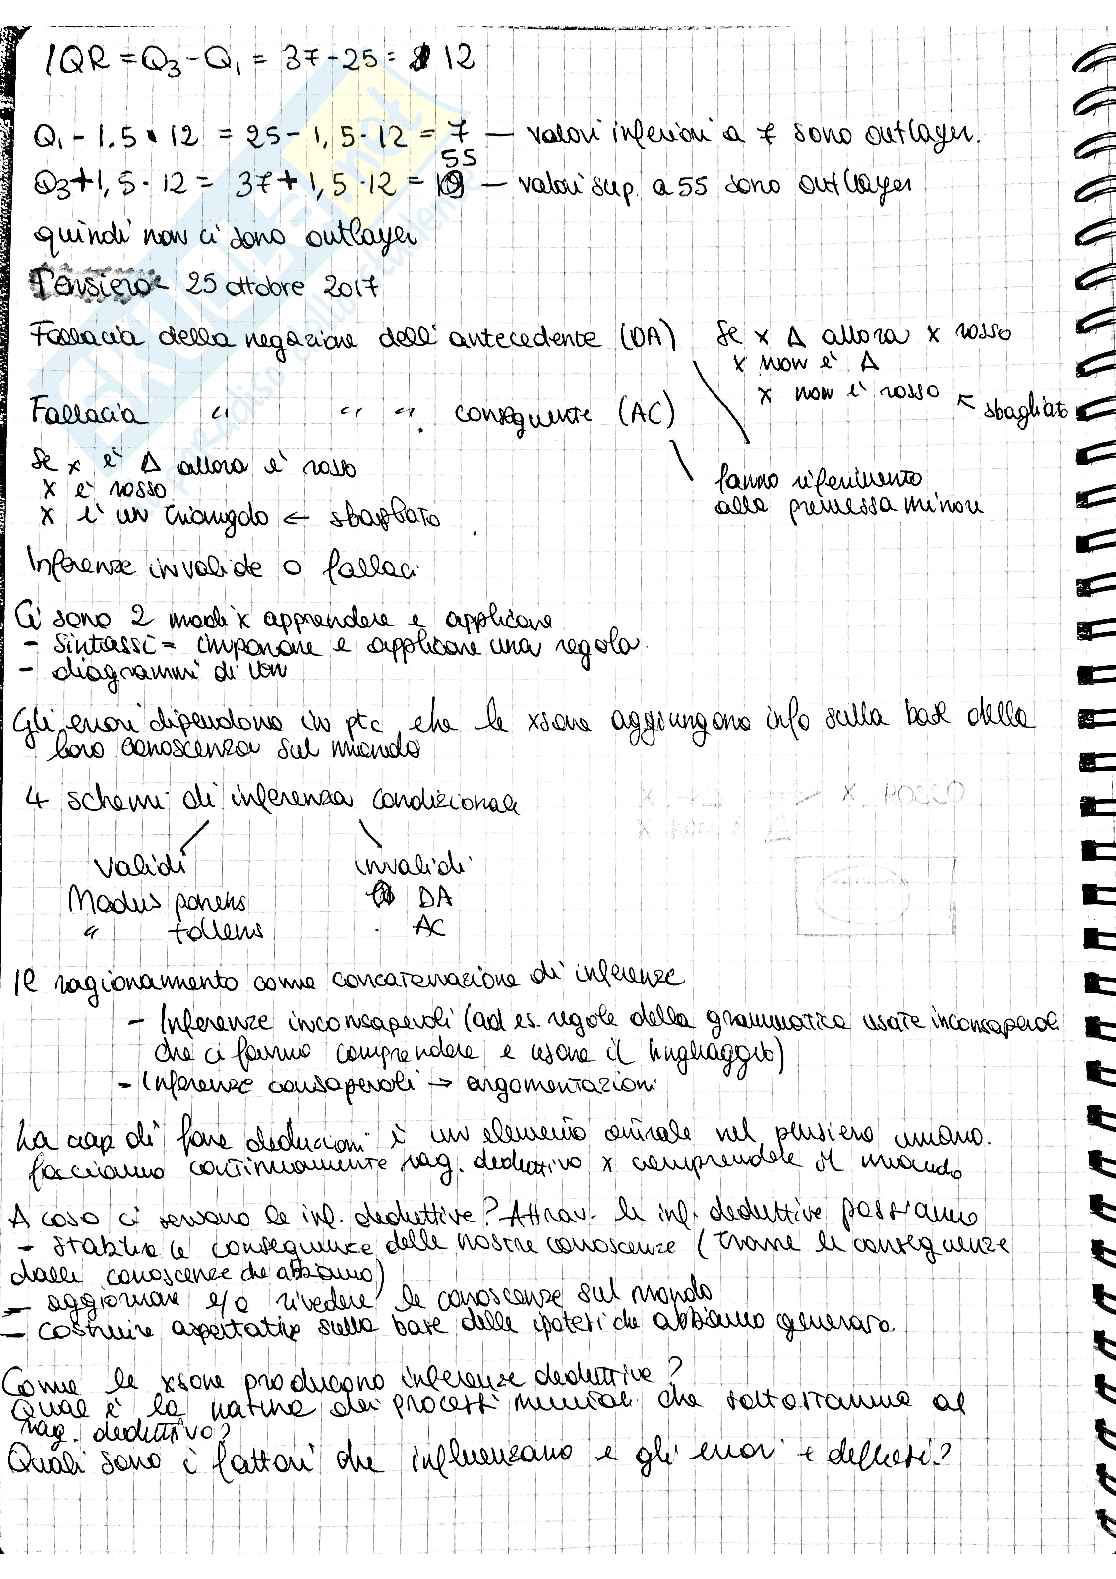 IQR = Q3 - Q1 = 37 - 25 = 12
Q1 - 1.5 • 12 = 25 - 1,5 · 12 = 7 — valori inferiori a 7 sono outlayer.
Q3 + 1,5 · 12 = 37 + 1,5 · 12 = 55 — valori sup. a 55 sono outlayer
quindi non ci sono outlayer
Pensiero 25 ottobre 2017
Fallacia della negazione dell'antecedente (DA) Se x Δ allora x rosso
x non è Δ
x non è rosso ← sbagliato
Fallacia " " " conseguente (AC)
Se x è Δ allora è rosso
x è rosso
x è un triangolo ← sbagliato
fanno riferimento
alla premessa minore
Inferenze invalide o fallaci
Ci sono 2 modi x apprendere e applicare
- Sintassi = imparare e applicare una regola.
- diagrammi di ven
Gli errori dipendono in ptc che le xsone aggiungono info sulla base della
loro conoscenza sul mondo
4 schemi di inferenza condizionale
validi invalidi
Modus ponens DA
" tollens AC
Il ragionamento come concatenazione di inferenze
- Inferenze inconsapevoli (ad es. regole della grammatica usate inconsapevoli
che ci fanno comprendere e usare il linguaggio)
- Inferenze consapevoli → argomentazioni
La cap di fare deduzioni è un elemento cruciale nel pensiero umano.
facciamo continuamente rag. deduttivo x comprendere il mondo
A cosa ci servono le inf. deduttive? Attrav. le inf. deduttive possiamo
- stabilire le conseguenze delle nostre conoscenze (trarre le conseguenze
dalle conoscenze che abbiamo)
- aggiornare e/o rivedere le conoscenze sul mondo
- costruire aspettative sulla base delle ipotesi che abbiamo generato.
Come le xsone producono inferenze deduttive?
Qual è la natura dei processi mentali che sottostanno al
rag. deduttivo?
Quali sono i fattori che influenzano e gli errori +